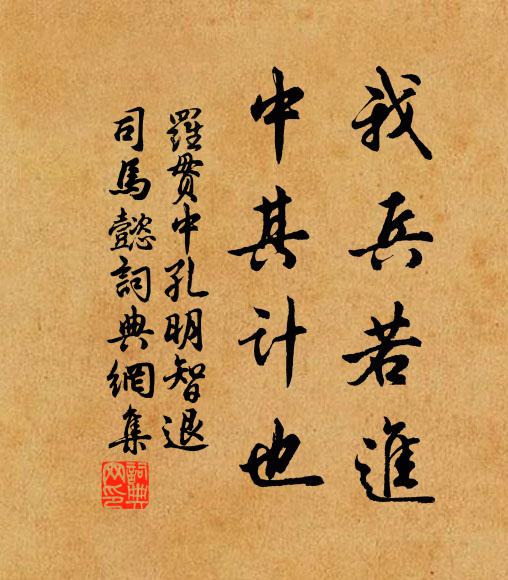 我兵若進
中其計也
羅貫中孔明智退
司馬懿詞典網集
詞典
网印